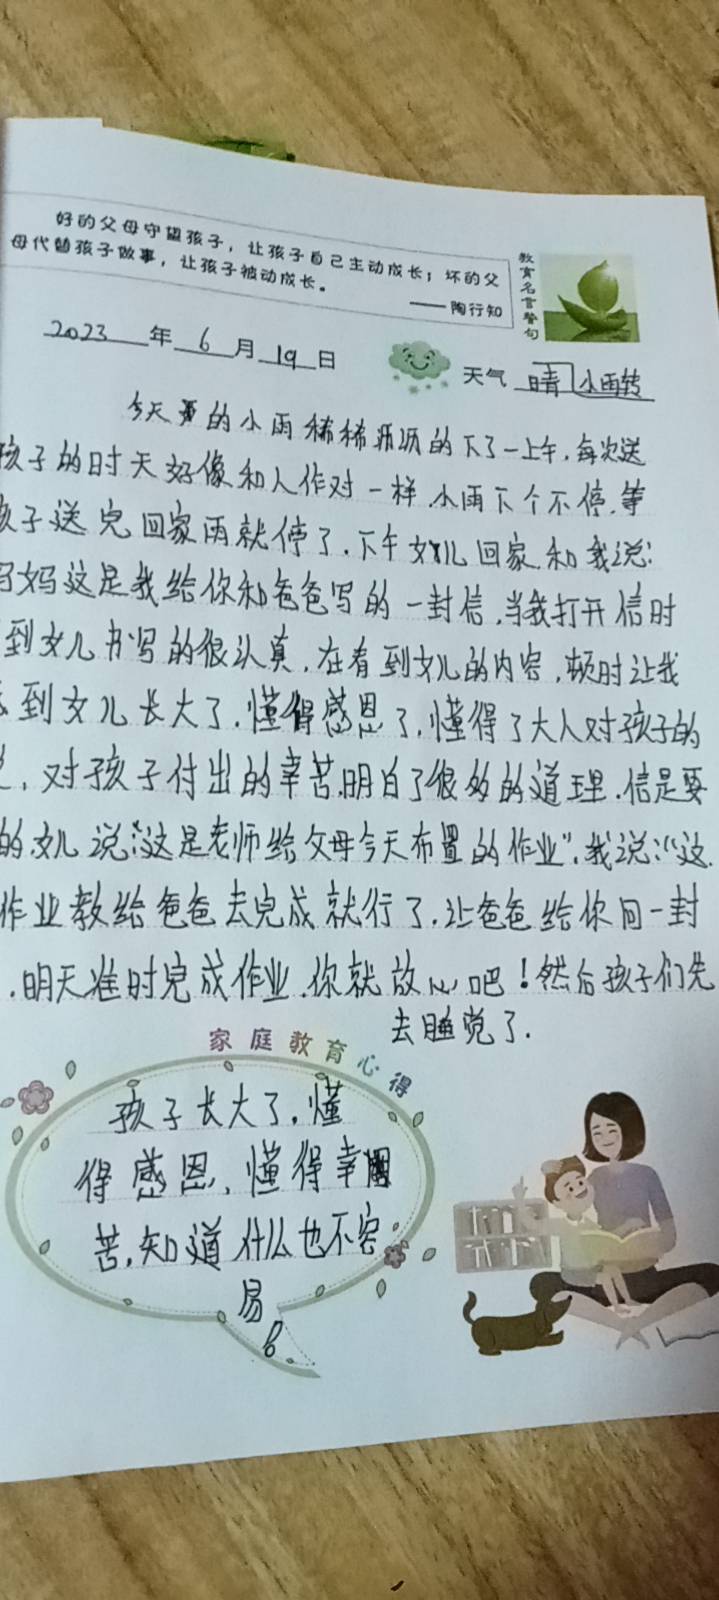 好的父母守望孩子，让孩子自己主动成长；坏的父
母代替孩子做事，让孩子被动成长。
——陶行知
教育名言警句
2023年6月19日
天气 晴 小雨转
今天的小雨稀稀沥沥的下了一上午，每次送
孩子的时天好像和人作对一样，小雨下个不停，等
孩子送完回家雨就停了，下午女儿回家和我说：
妈妈这是我给你和爸爸写的一封信，当我打开信时
到女儿书写的很认真，在看到女儿的内容，顿时让我
到女儿长大了，懂得感恩了，懂得了大人对孩子的
，对孩子付出的幸苦，明白了很多的道理，信是要
的，女儿说：“这是老师给父母今天布置的作业”，我说：“这
作业教给爸爸去完成就行了，让爸爸给你回一封
，明天准时完成作业，你就放心吧！然后孩子们先
去睡觉了.
家庭教育心得
孩子长大了，懂
得感恩，懂得幸
苦，知道什么也不容
易